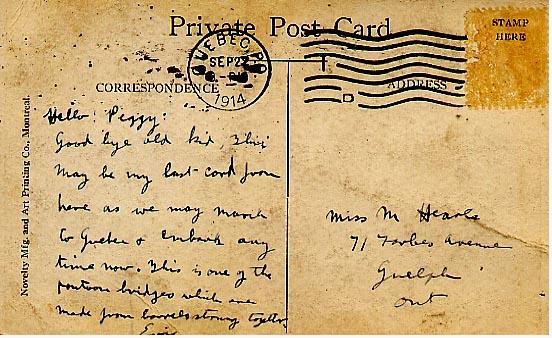 Private Post Card
STAMP
HERE
QUEBEC, P.Q.
SEP 27
1914
CORRESPONDENCE
ADDRESS
Novelty Mfg. and Art Printing Co., Montreal.
Hello! Peggy:
Good bye old kid, This
may be my last card from
here as we may march
to Quebec & Embark any
time now. This is one of the
pontoon bridges which are
made from barrels strung together
Miss M Hearle
71 Forbes Avenue
Guelph
Ont